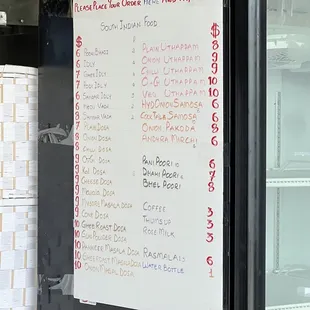 Please Place Your Order Here
South Indian Food
$
$
6 Poori Bhaji
6 Idly
7 Ghee Idly
7 Podi Idly
6 Sambar Idly
6 Medu Vada
8 Sambar Vada
7 Plain Dosa
8 Onion Dosa
8 Chilli Dosa
9 Kal Dosa
9 Cheese Dosa
9 Mysore Masala Dosa
9 Cone Dosa
10 Ghee Roast Dosa
10 Gun Powder Dosa
10 Paneer Masala Dosa
10 Ghee Roast Masala Dosa
10 Onion Masal Dosa
Plain Uthappam 8
Onion Uthappam 9
Chilli Uthappam 9
Uthappam 10
Veg Uthappam 10
Hyd Onion Samosa 6
Cocktail Samosa 6
Onion Pakoda 8
Andhra Punugulu 6
Pani Poori 6
Dhahi Poori 7
Bhel Poori 8
Coffee 3
Thumsup 3
Rose Milk 3
Rasmalai 6
Water Bottle 1